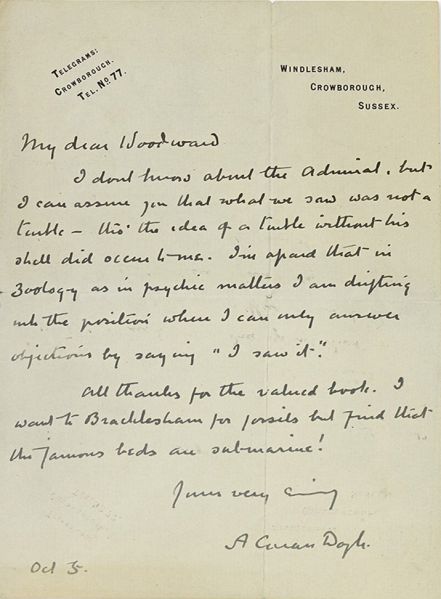 TELEGRAMS:
CROWBOROUGH.
TEL. NO 77.
WINDLESHAM,
CROWBOROUGH,
SUSSEX.
My dear Woodward
I dont know about the Admiral, but
I can assure you that what we saw was not a
turtle – tho' the idea of a turtle without his
shell did occur to me. I'm afraid that in
Zoology as in psychic matters I am drifting
into the position where I can only answer
objections by saying "I saw it".
All thanks for the valued book. I
want to Bracklesham for fossils but find that
the famous beds are submarine!
Yours very
A Conan Doyle.
Oct 5.